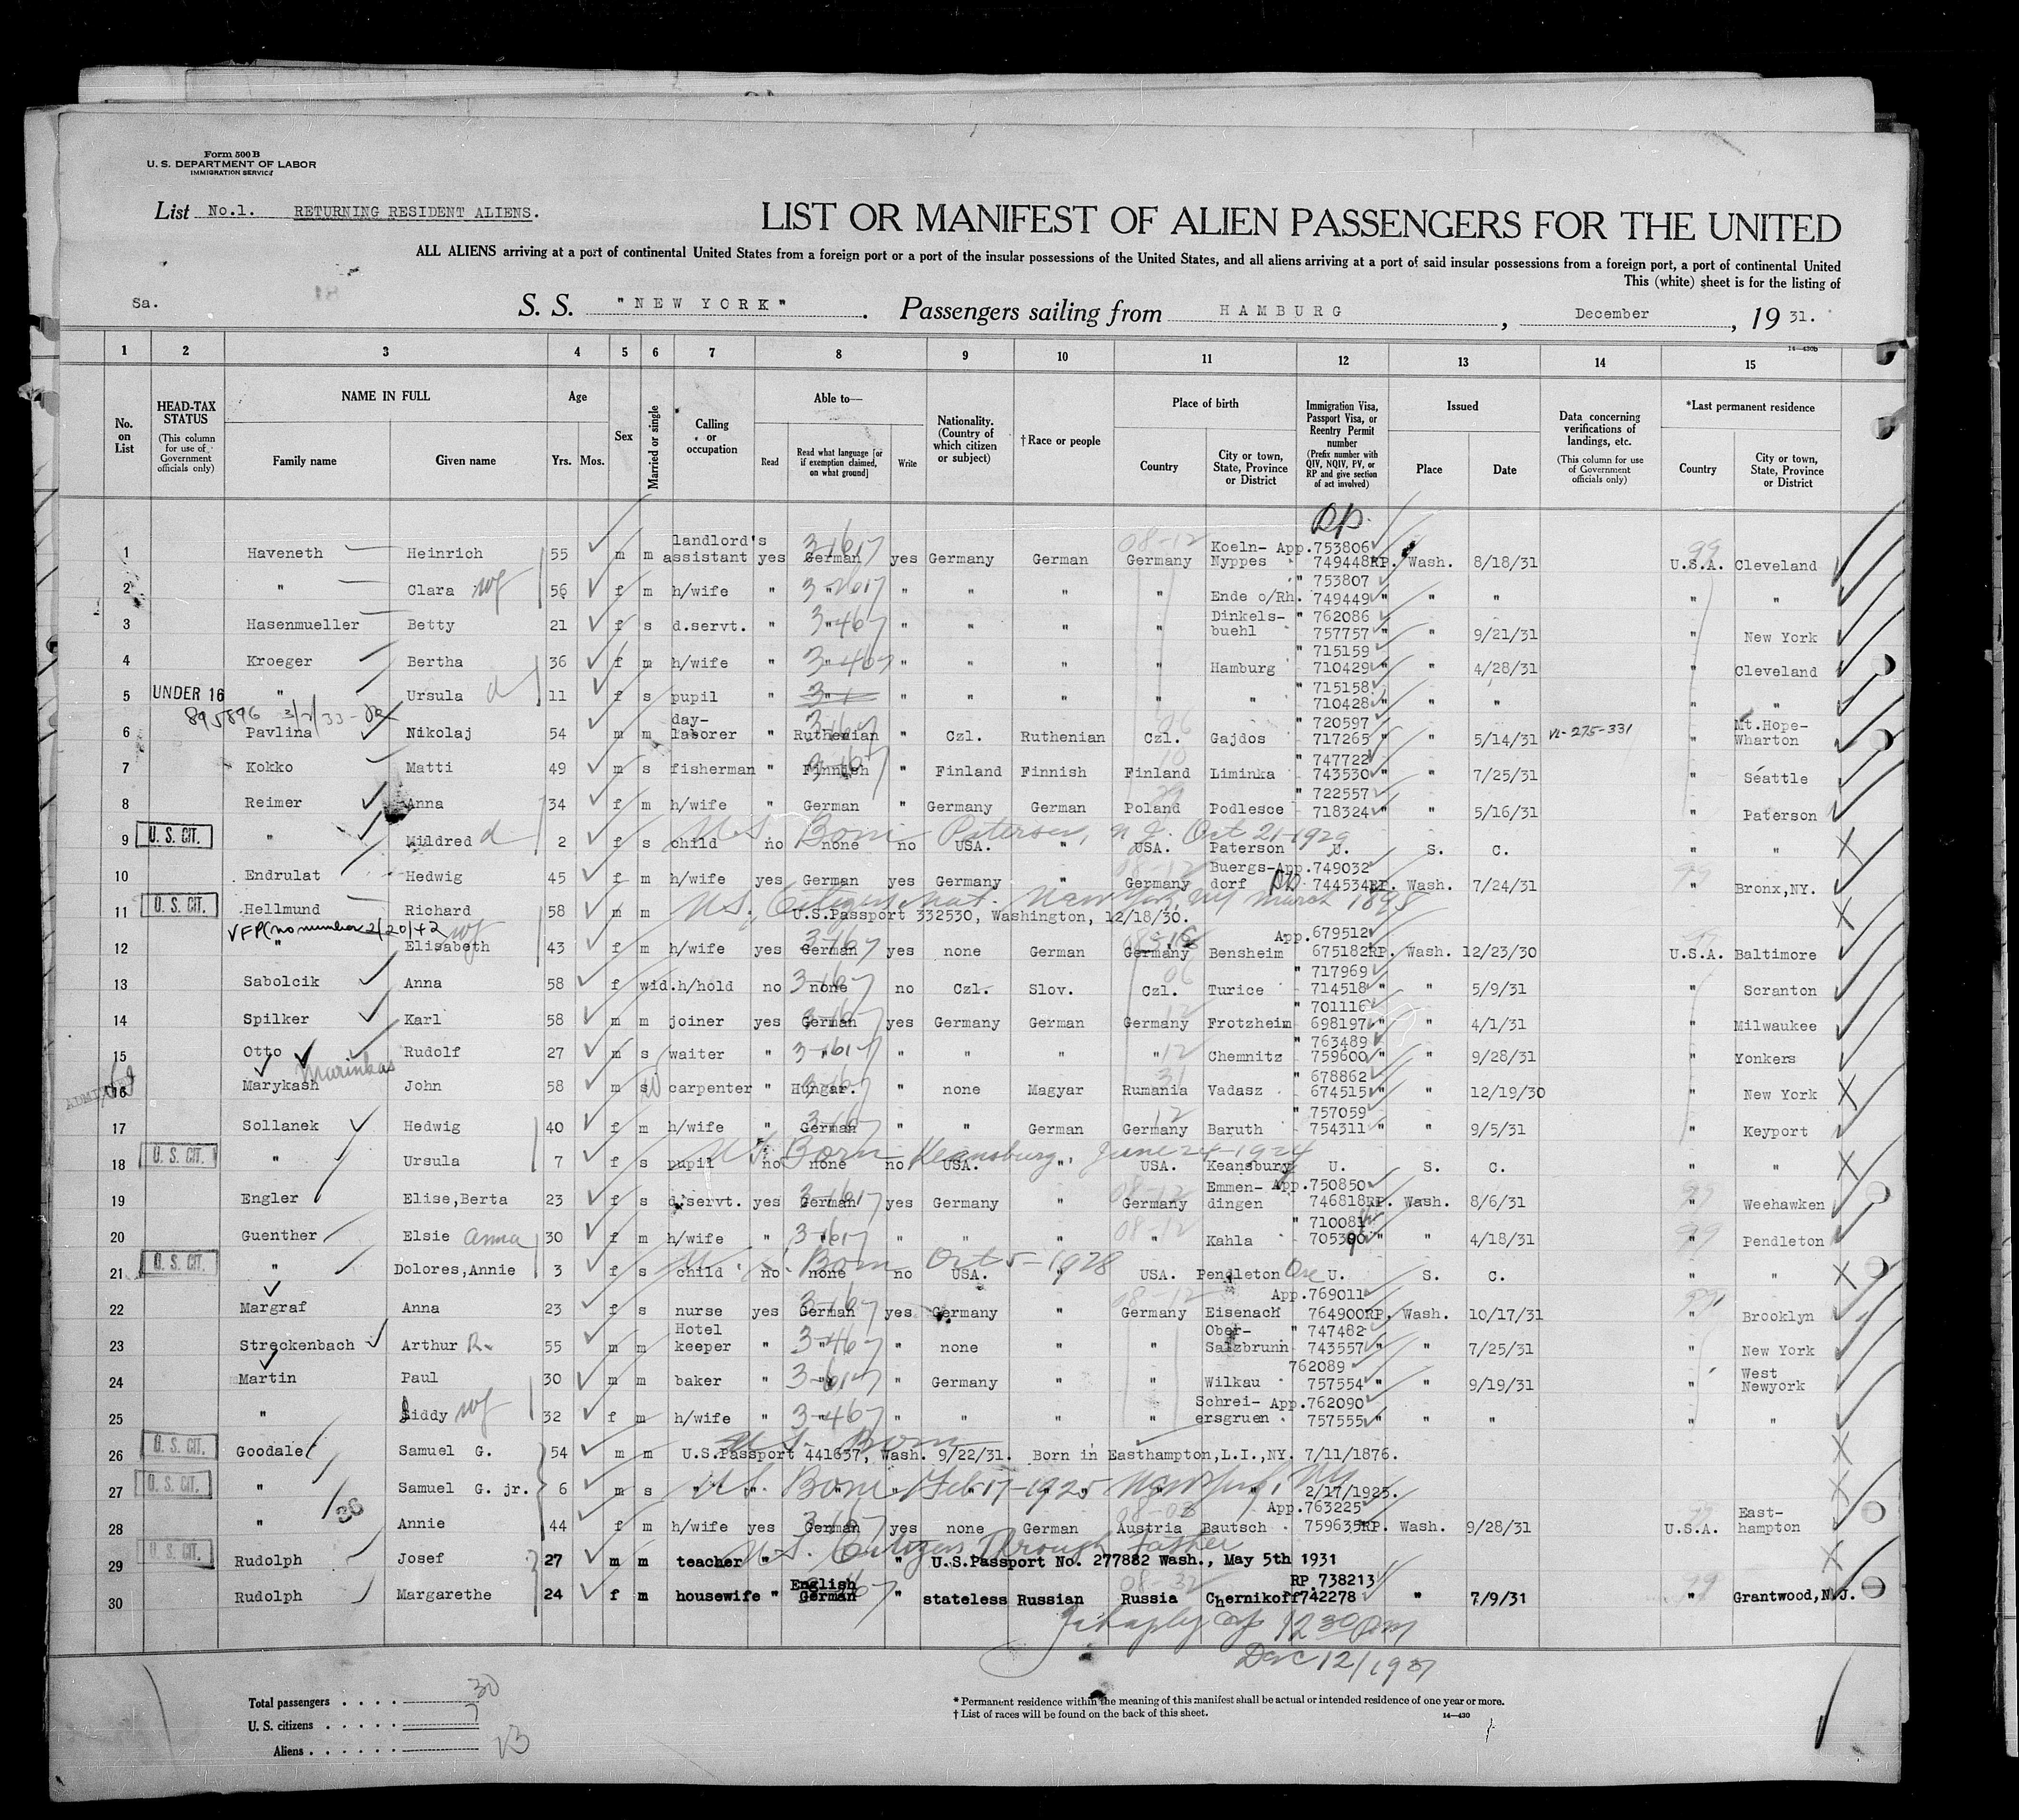 Form 500 B
U. S. DEPARTMENT OF LABOR
IMMIGRATION SERVICE
List No.1. RETURNING RESIDENT ALIENS.
LIST OR MANIFEST OF ALIEN PASSENGERS FOR THE UNITED
ALL ALIENS arriving at a port of continental United States from a foreign port or a port of the insular possessions of the United States, and all aliens arriving at a port of said insular possessions from a foreign port, a port of continental United
This (white) sheet is for the listing of
Sa.
S. S. "NEW YORK". Passengers sailing from HAMBURG, December, 19 31.
14-430b
1 2 3 4 5 6 7 8 9 10 11 12 13 14 15
No. on List
HEAD-TAX STATUS (This column for use of Government officials only)
NAME IN FULL Family name Given name
Age Yrs. Mos.
Sex
Married or single
Calling or occupation
Able to— Read Read what language [or if exemption claimed, on what ground] Write
Nationality. (Country of which citizen or subject)
† Race or people
Place of birth Country City or town, State, Province or District
Immigration Visa, Passport Visa, or Reentry Permit number (Prefix number with QIV, NQIV, PV, or RP and give section of act involved)
Issued Place Date
Data concerning verifications of landings, etc. (This column for use of Government officials only)
*Last permanent residence Country City or town, State, Province or District
1 Haveneth Heinrich 55 m m landlord's assistant yes German 3-1617 yes Germany German 08-12 Germany Koeln-Nyppes App. 753806 749448RP. Wash. 8/18/31 99 U.S.A. Cleveland
2 " Clara wf 56 f m h/wife " " " " " " Ende o/Rh. " 753807 749449 " " " " "
3 Hasenmueller Betty 21 f s d.servt. " " 3-467 " " " " Dinkels-buehl " 762086 757757 " " 9/21/31 " New York
4 Kroeger Bertha 36 f m h/wife " " 3-467 " " " " Hamburg " 715159 710429 " " 4/28/31 " Cleveland
5 UNDER 16 " Ursula d 11 f s pupil " " " " " " " " 715158 710428 " " " " "
895896 3/2/33
6 Pavlina Nikolaj 54 m m day-laborer " Ruthenian " Czl. Ruthenian Czl. Gajdos " 720597 717265 " " 5/14/31 VL-275-331 " Mt.Hope-Wharton
7 Kokko Matti 49 m s fisherman " Finnish " Finland Finnish Finland Liminka " 747722 743530 " " 7/25/31 " Seattle
8 Reimer Anna 34 f m h/wife " German " Germany German Poland Podlesce " 722557 718324 " " 5/16/31 " Paterson
U.S. Born Paterson, N.J. Oct 21-1929
9 U. S. CIT. " Mildred d 2 f s child no none no USA. " USA. Paterson U. S. C. " "
10 Endrulat Hedwig 45 f m h/wife yes German yes Germany " Germany Buergs-dorf App. 749032 744534RP. Wash. 7/24/31 " Bronx,NY.
U.S. Citizen Nat. New York, NY March 1898
11 U. S. CIT. Hellmund Richard 58 m m U.S.Passport 332530, Washington, 12/18/30.
VFP(no number 2/20/42 wf
12 " Elisabeth 43 f m h/wife yes German yes none German Germany Bensheim App. 679512 675182RP. Wash. 12/23/30 U.S.A. Baltimore
13 Sabolcik Anna 58 f wid. h/hold no none no Czl. Slov. Czl. Turice " 717969 714518 " " 5/9/31 " Scranton
14 Spilker Karl 58 m m joiner yes German yes Germany German Germany Frotzheim " 701116 698197 " " 4/1/31 " Milwaukee
15 Otto Rudolf 27 m s waiter " " " " " " Chemnitz " 763489 759600 " " 9/28/31 " Yonkers
Marinkas
16 Marykash John 58 m s carpenter " Hungar. " none Magyar Rumania Vadasz " 678862 674515 " " 12/19/30 " New York
17 Sollanek Hedwig 40 f m h/wife " German " " German Germany Baruth " 757059 754311 " " 9/5/31 " Keyport
U.S. Born Keansburg. June 24-1924
18 U. S. CIT. " Ursula 7 f s pupil no none no USA. " USA. Keansbury U. S. C. " "
19 Engler Elise,Berta 23 f s d.servt. yes German yes Germany " Germany Emmen-dingen App. 750850 746818RP. Wash. 8/6/31 " Weehawken
20 Guenther Elsie Anna 30 f m h/wife " " " " " " Kahla " 710081 705390 " " 4/18/31 " Pendleton
U.S. Born Oct 5-1928
21 U. S. CIT. " Dolores,Annie 3 f s child no none no USA. " USA. Pendleton Ore U. S. C. " "
22 Margraf Anna 23 f s nurse yes German yes Germany " Germany Eisenach App. 769011 764900RP. Wash. 10/17/31 " Brooklyn
23 Streckenbach Arthur R. 55 m m Hotel keeper " " " none " " Ober-Salzbrunn " 747482 743557 " " 7/25/31 " New York
24 Martin Paul 30 m m baker " " " Germany " " Wilkau 762089 757554 " " 9/19/31 " West Newyork
25 " Siddy wf 32 f m h/wife " " " " " " Schrei-ersgruen App. 762090 757555 " " " " "
U.S. Born
26 U. S. CIT. Goodale Samuel G. 54 m m U.S.Passport 441637, Wash. 9/22/31. Born in Easthampton,L.I.,NY. 7/11/1876.
U.S. Born Feb 17-1925 New York, NY
27 U. S. CIT. " Samuel G. jr. 6 m s " " " " " " " 2/17/1925.
28 " Annie 44 f m h/wife yes German yes none German Austria Bautsch App. 763225 759635RP. Wash. 9/28/31 U.S.A. East-hampton
U.S. Citizen Through Father
29 U. S. CIT. Rudolph Josef 27 m m teacher " " U.S.Passport No. 277882 Wash., May 5th 1931
30 Rudolph Margarethe 24 f m housewife " English German " stateless Russian Russia Chernikoff RP. 738213 742278 " 7/9/31 " Grantwood,N.J.
12 30 am
Dec 12/1931
Total passengers . . . . 30
U. S. citizens . . . . . 7
Aliens . . . . . .
* Permanent residence within the meaning of this manifest shall be actual or intended residence of one year or more.
† List of races will be found on the back of this sheet.
14—430